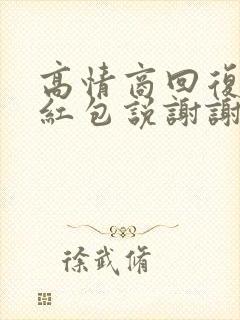 高情商回復
紅包説謝謝
徐武脩